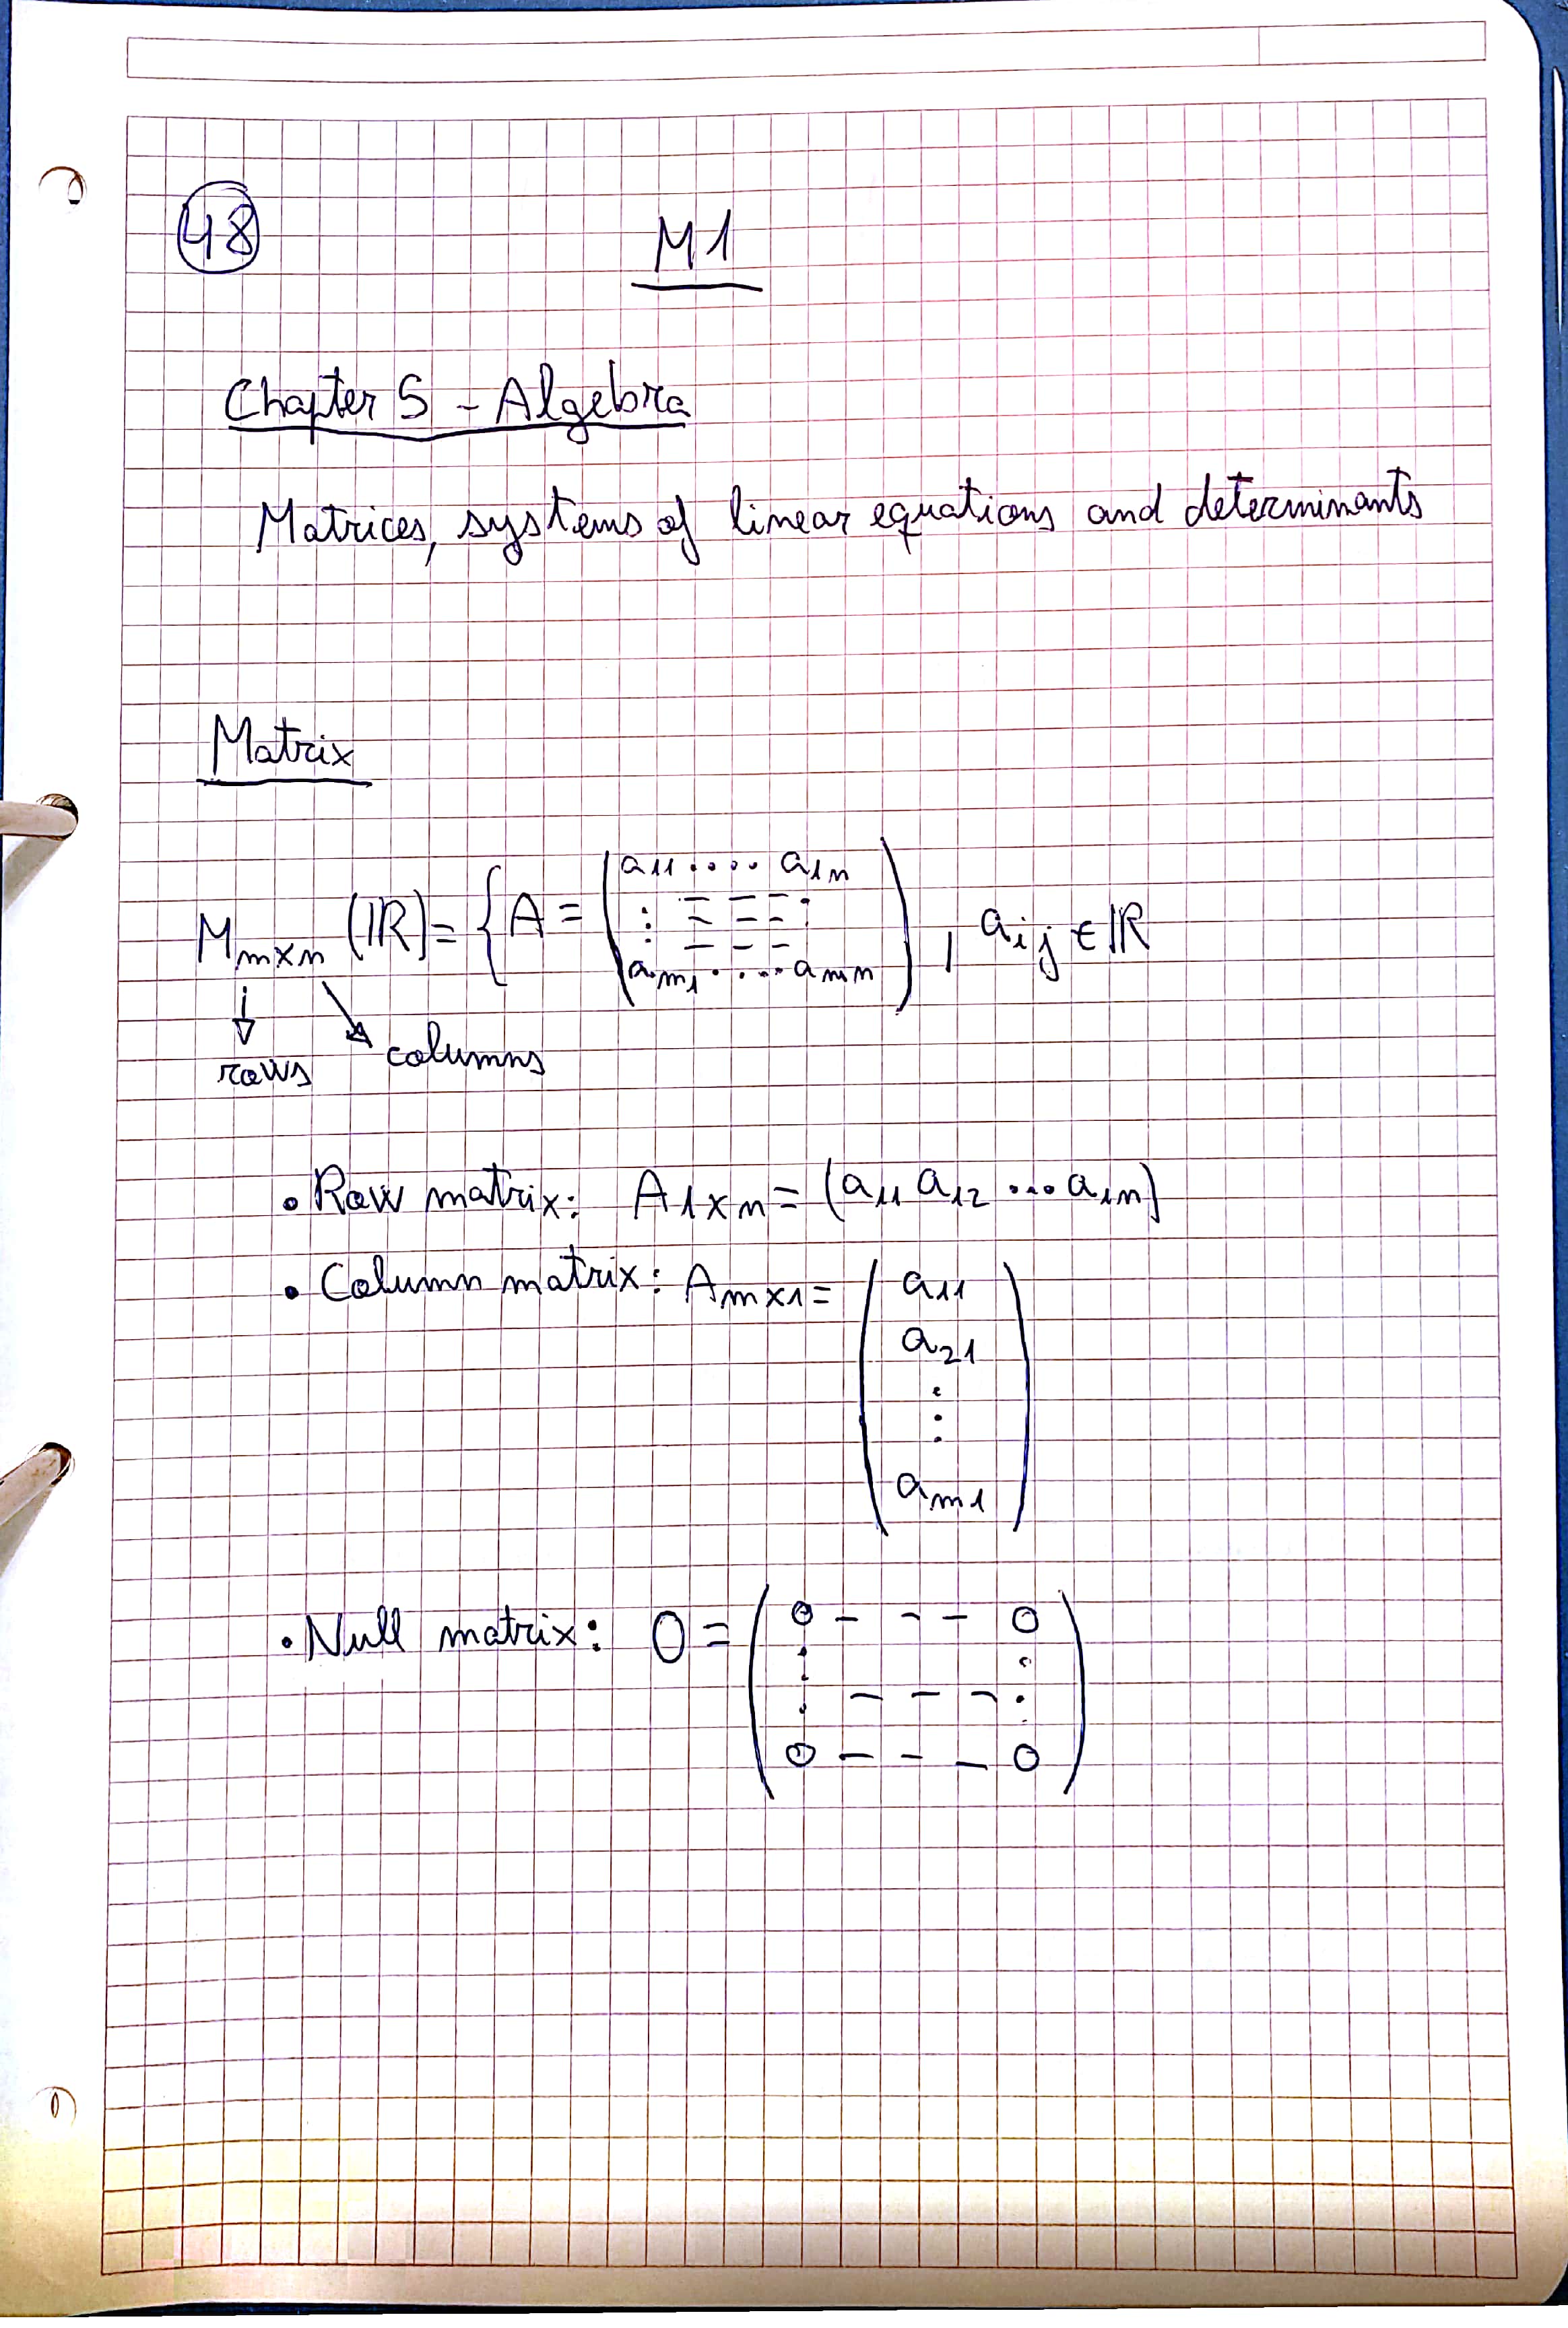 48
M1
Chapter 5 - Algebra
Matrices, systems of linear equations and determinants
Matrix
M m×n (ℝ) = { A = ( a11 .... a1n
⋮ – – – – ⋮
am1 .... amn ) , aij ∈ ℝ
rows columns
• Row matrix: A1×n = (a11 a12 ... a1n)
• Column matrix: Am×1 = ( a11
a21
⋮
am1 )
• Null matrix: O = ( 0 - - - 0
⋮ - - - ⋮
0 - - - 0 )